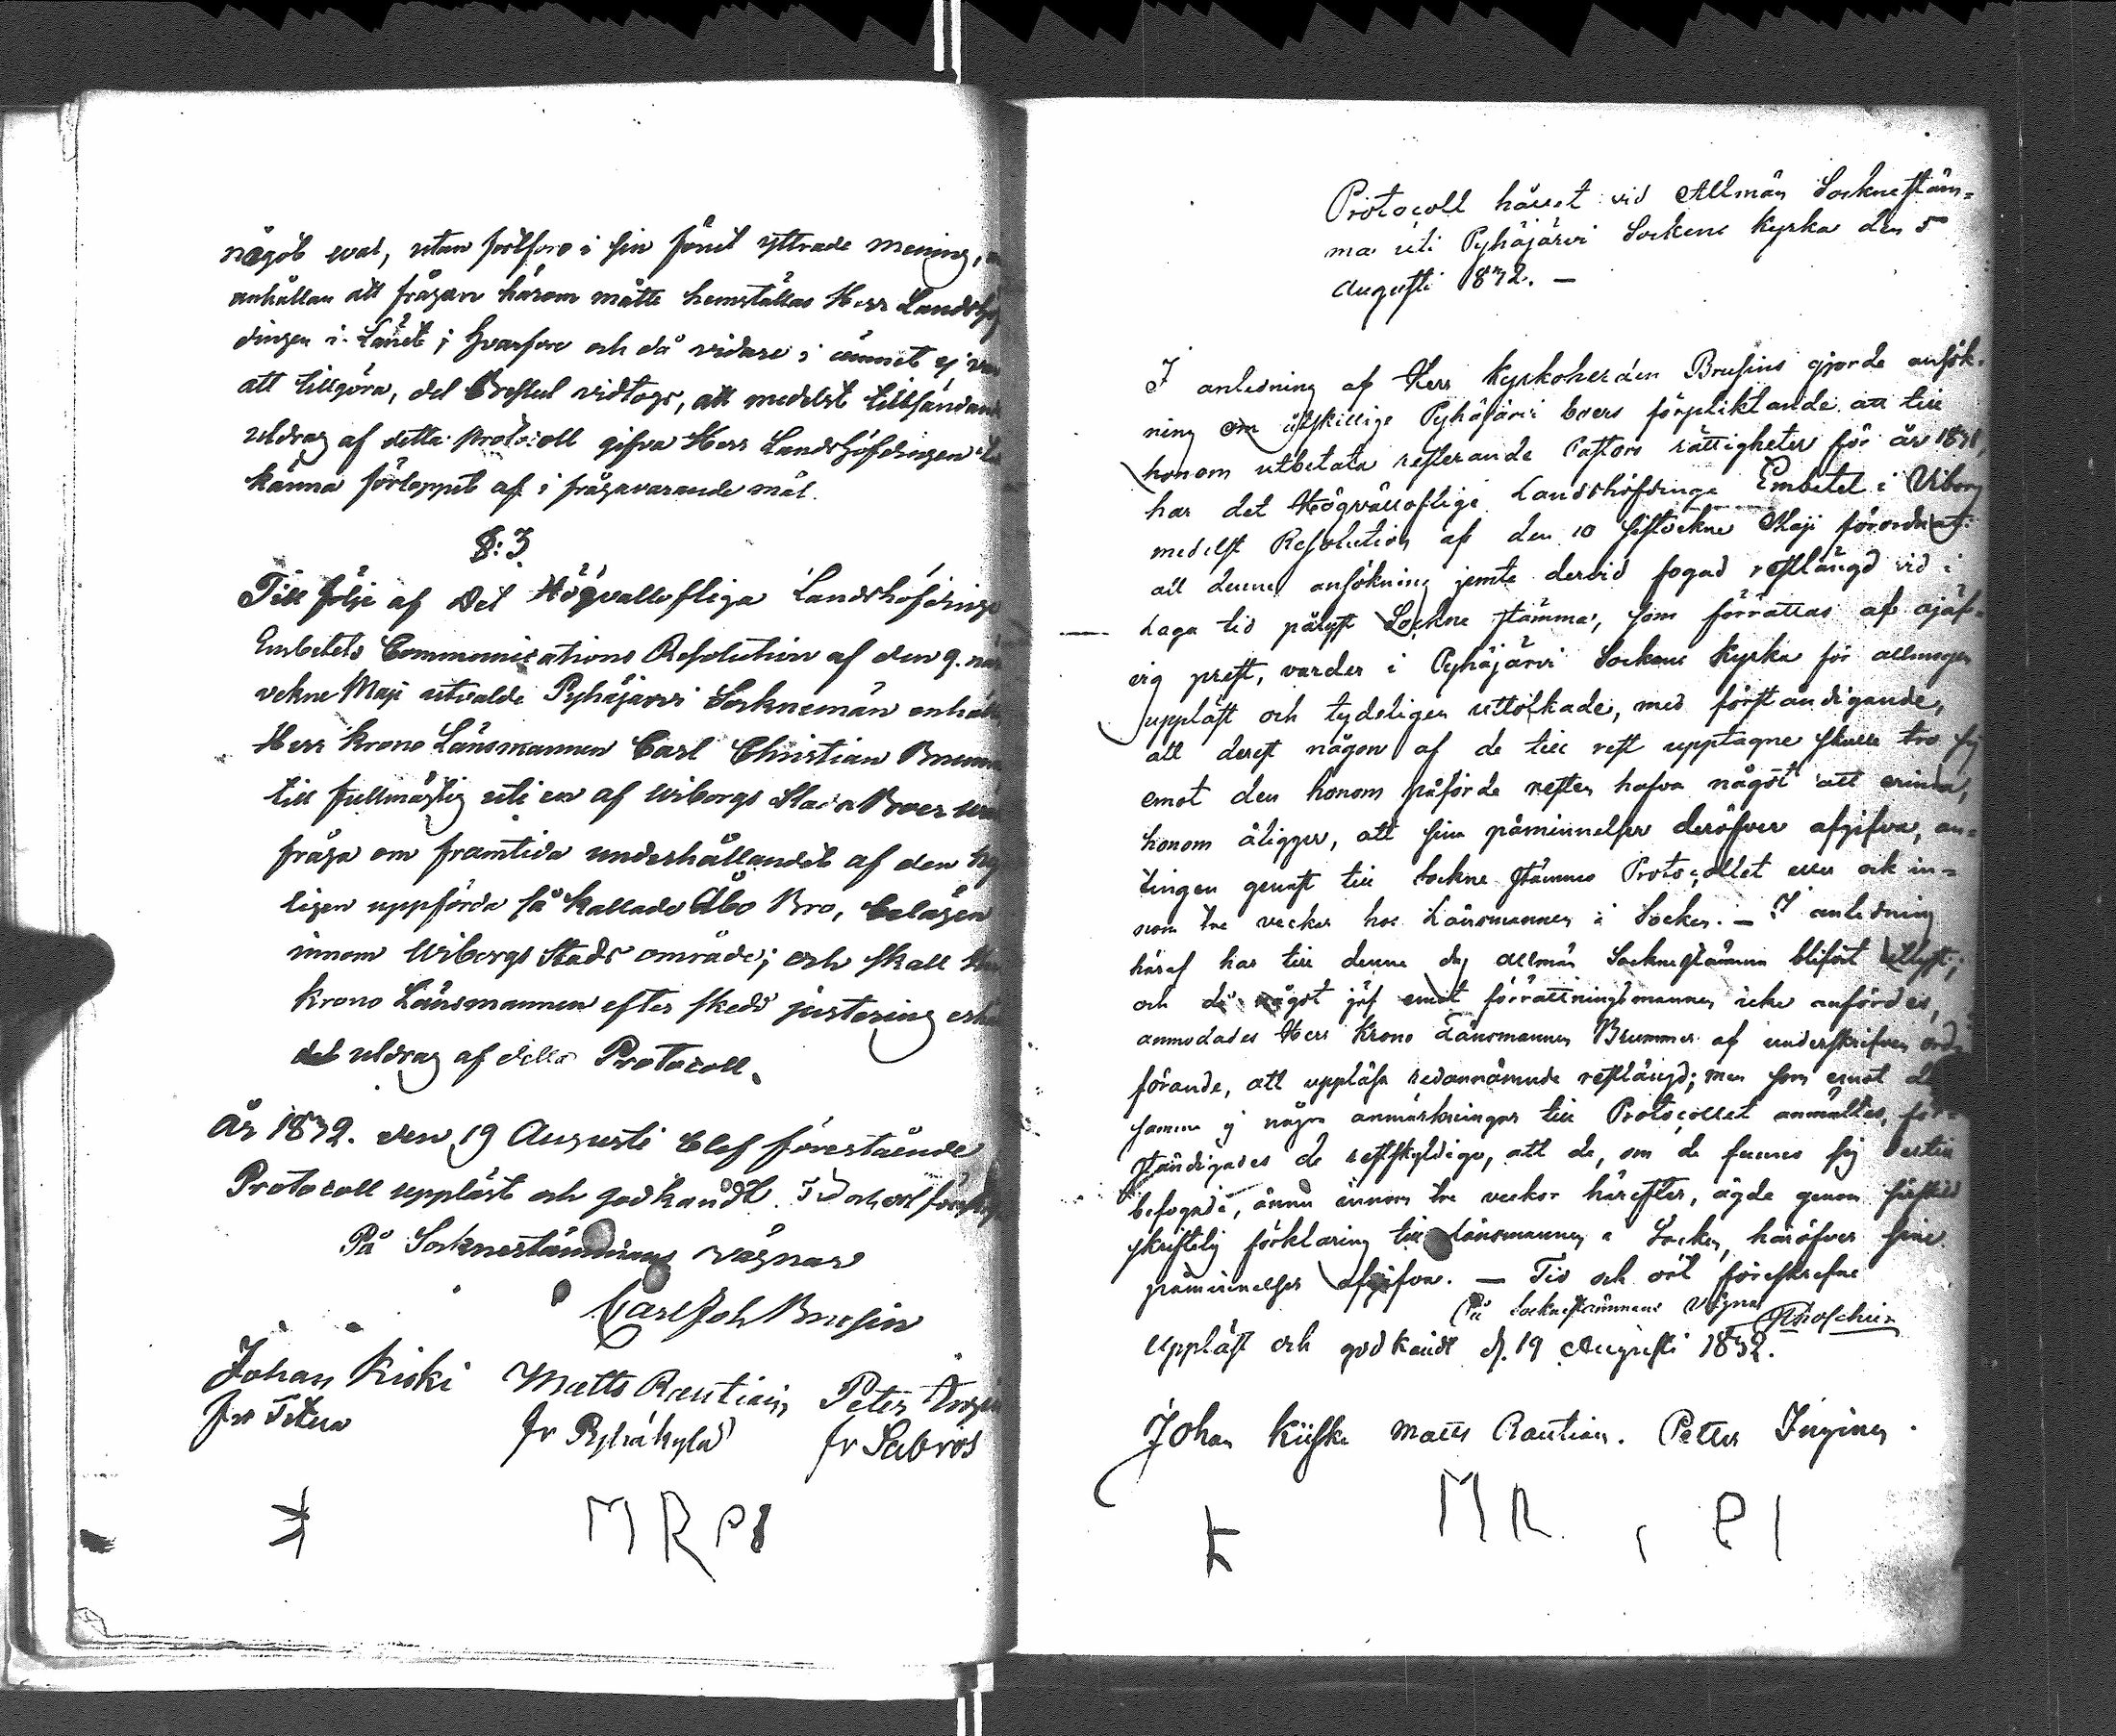 något svar, utan fortforo i sin förut yttrade mening,
anhållan att frågan härom måtte hemställas Herr Landshöf
dingen i Länet; hvarföre och då vidare i ämnet ej var
att tillgöra, det Beslut vidtogs, att medelst tillsändande
utdrag af detta Protocoll gifva Herr Landshöfdingen
känna förloppet af i frågavarande mål.
§: 3
Till följe af Det Högvällofliga Landshöfdinge
Embetets Communications Resolution af den 9. näst
vekne Maji utvalde Pyhäjärvi Socknemän
Herr Krono Länsmannen Carl Christian Brummer
till fullmägtig uti en af Wiborgs Stads Boer
fråga om framtida underhållandet af den
ligen uppförda så kallade Åbo Bro, belägen
innom Wiborgs Stads område; och skall Herr
Krono Länsmannen efter skedd justering
det utdrag af detta Protocoll.
År 1832. den 19 Augusti blef förestående
Protocoll uppläst och godkändt. Tid och ort
På Socknestämmans vägnar
Carl Joh Brusin
Johan Kiiski Matts Rautiain Peter
fr fr Pyhäkylä fr Sabrois
M R P I
Protocoll hållet vid Allmän Socknestäm=
ma uti Pyhäjärvi Sockens Kyrka den 5
Augusti 1832. —
I anledning af Herr Kyrkoherden Brusins gjorde ansök-
ning om åtskillige Pyhäjärvi boers förpliktande att till
honom utbetala resterande Pastors rättigheter för år 1831,
har det Högvällofliga Landshöfdinge Embetet i Viborg
medelst Resolution af den 10 sistvekne Maji förordnat:
att denna ansökning jemte dervid fogad restlängd vid i
laga tid pålyst Sockne stämma, som förrättas af ojäf-
vig prest, varder i Pyhäjärvi Sockens Kyrka för allmogen
uppläst och tydeligen uttolkade, med förständigande,
att derest någon af de till rest upptagne skulle tro sig
emot den honom påförde resten hafva något att erinra,
honom åligger, att sina påminnelser deröfver afgifva, an-
tingen genast till Sockne stämmo Protocollet eller ock in-
nom tre veckor hos Länsmannen i Socken. — I anledning
häraf har till denne dag allmän Socknestämma blifvit utlyst;
och då något jäf emot förrättningsmannen icke anfördes,
anmodades Herr Krono Länsmannen Brummer af underskrifven ord-
förande, att uppläsa redannämnde restlängd; men som emot
samma ej några anmärkningar till Protocollet anmältes, för-
ständigades de restskyldige, att de, om de funno sig dertill
befogade, ännu innom tre veckor härefter, ägde genom särskild
skriftelig förklaring till Länsmannen i Socken, häröfver sine
påminnelser afgifva. — Tid och ort föreskrefne
På Socknestämmans vägnar
Uppläst och godkändt d. 19 Augusti 1832.
Johan Kiiski Matts Rautiain. Petter Inginen.
M R P I